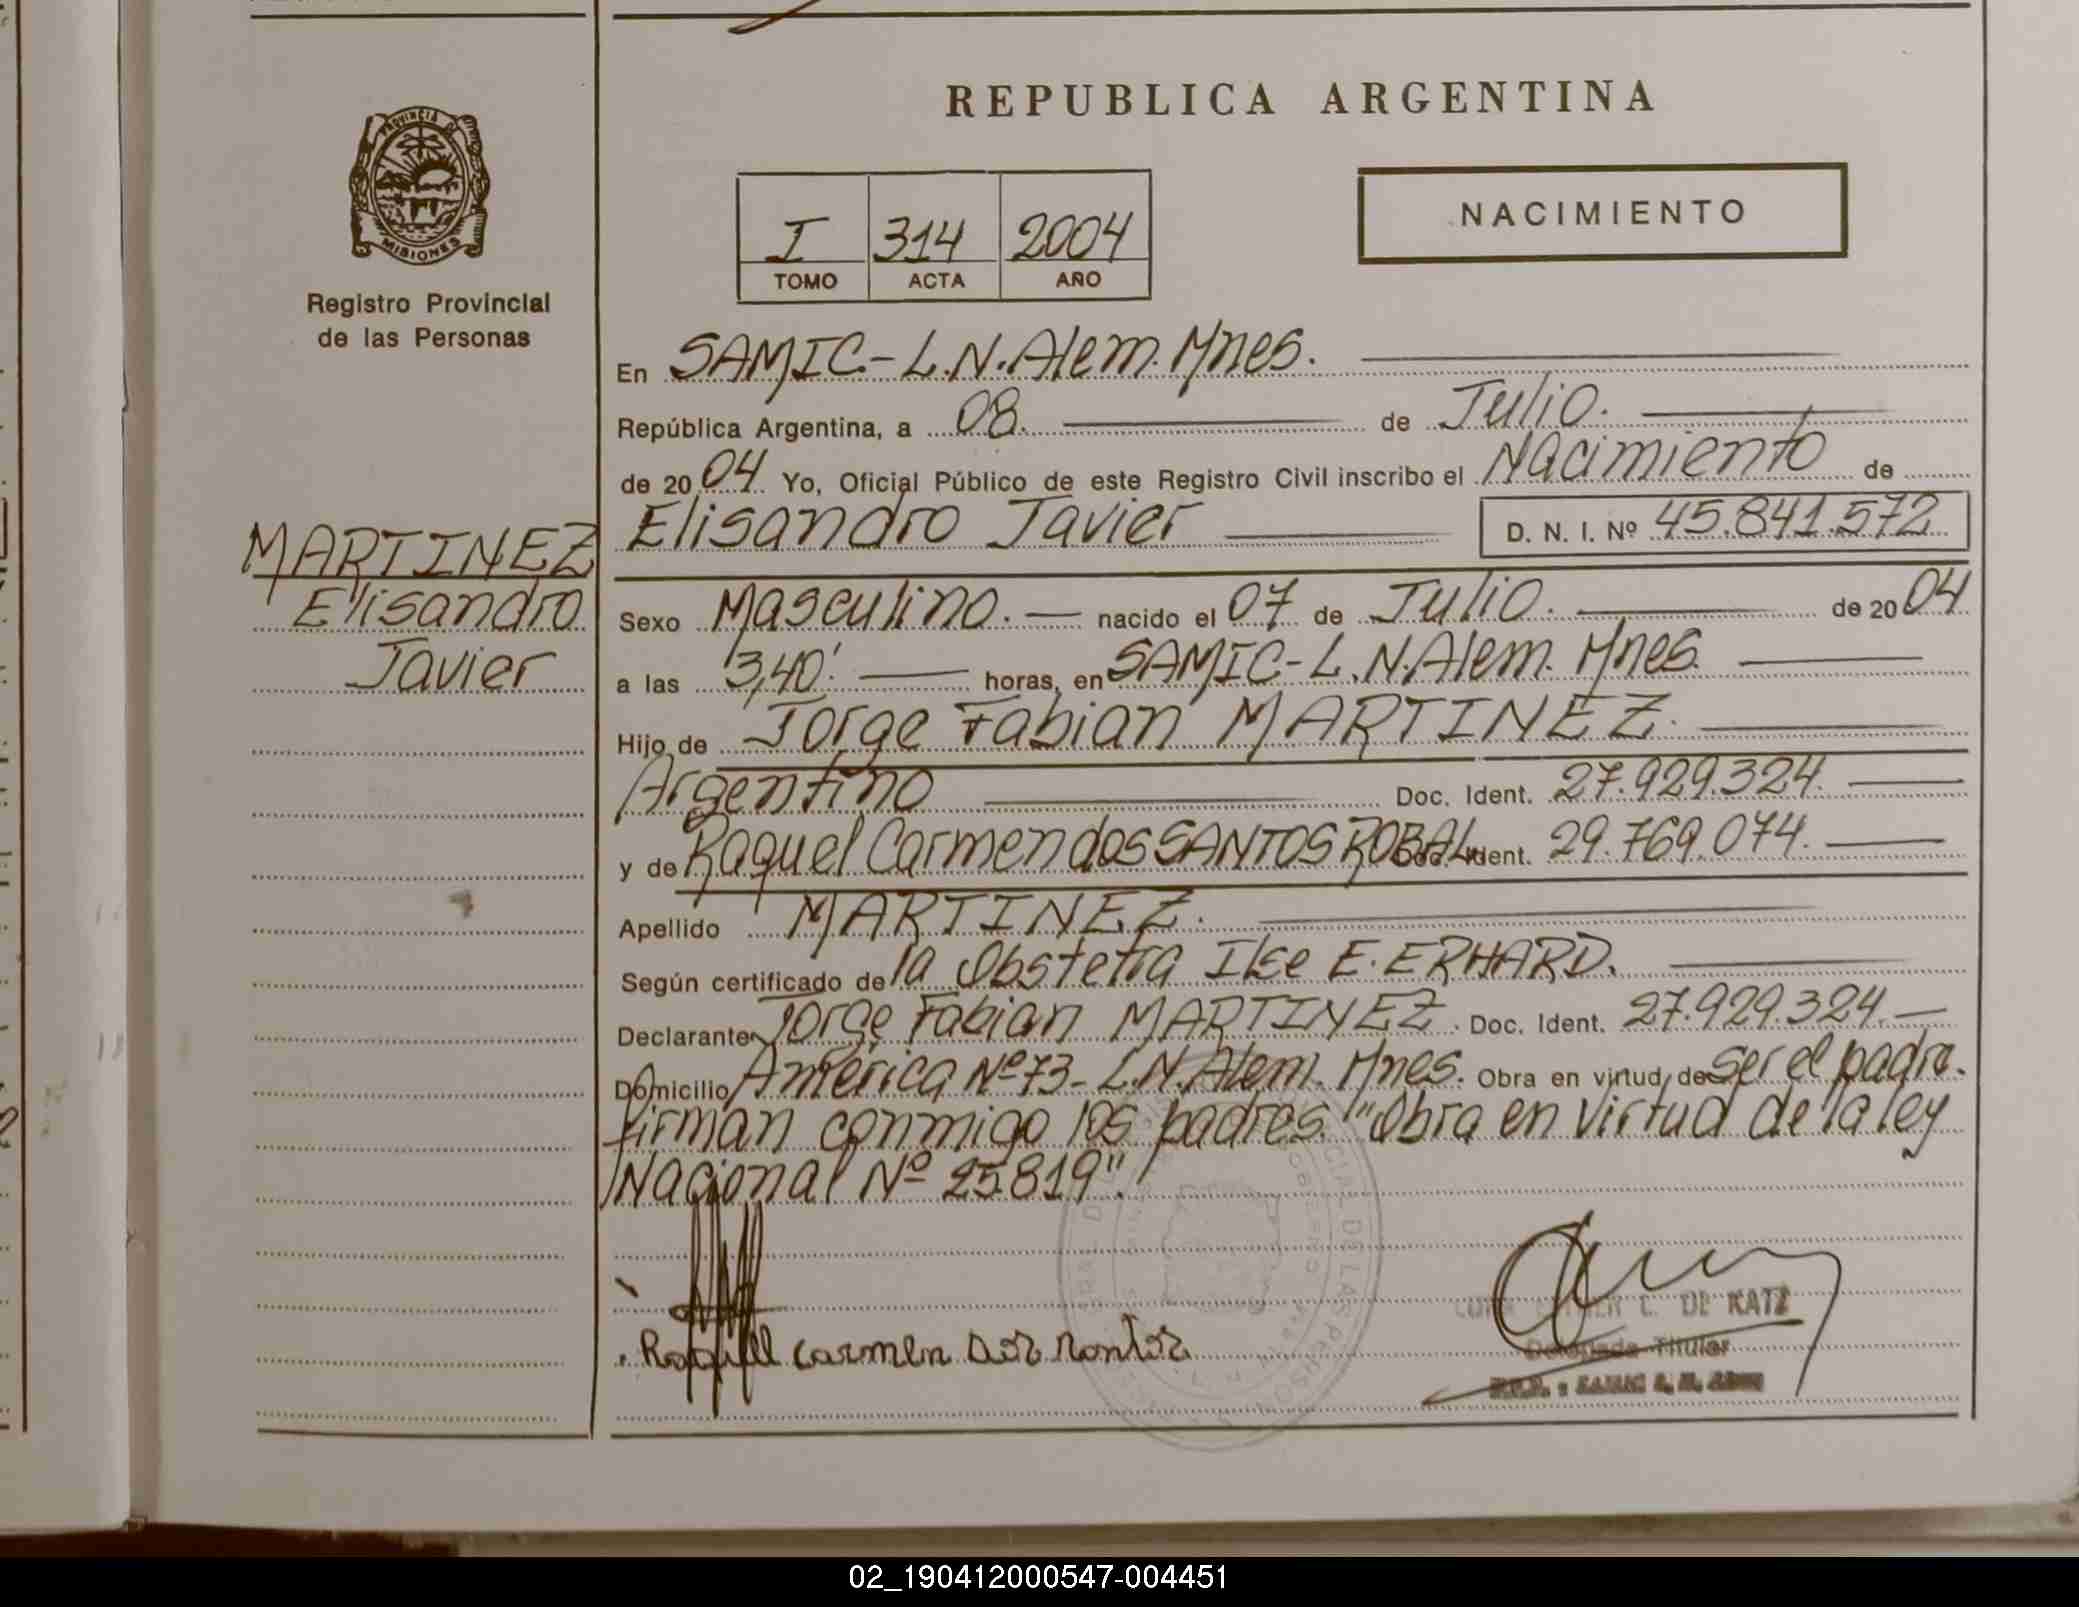 REPUBLICA ARGENTINA
PROVINCIA DE
MISIONES
Registro Provincial
de las Personas
I 314 2004
TOMO ACTA AÑO
NACIMIENTO
En SAMIC-L.N.Alem.Mnes.
República Argentina, a 08. de Julio.
de 2004 Yo, Oficial Público de este Registro Civil inscribo el Nacimiento de
Elisandro Javier D. N. I. Nº 45.841.572
MARTINEZ
Elisandro
Javier
Sexo Masculino. nacido el 07 de Julio. de 2004
a las 3,40' horas, en SAMIC-L.N.Alem. Mnes.
Hijo de Jorge Fabian MARTINEZ.
Argentino Doc. Ident. 27.929.324.
y de Raquel Carmen dos SANTOS ROBAL Doc. Ident. 29.769.074.
Apellido MARTINEZ.
Según certificado de la Obstetra Ilse E. ERHARD.
Declarante Jorge Fabian MARTINEZ. Doc. Ident. 27.929.324.
Domicilio América Nº 73- L.N.Alem. Mnes. Obra en virtud de ser el padre.
firman conmigo los padres. "Obra en virtud de la ley
Nacional Nº 25819".
Raquel Carmen Dos Santos
C. DE KATZ
Delegada Titular
02_190412000547-004451